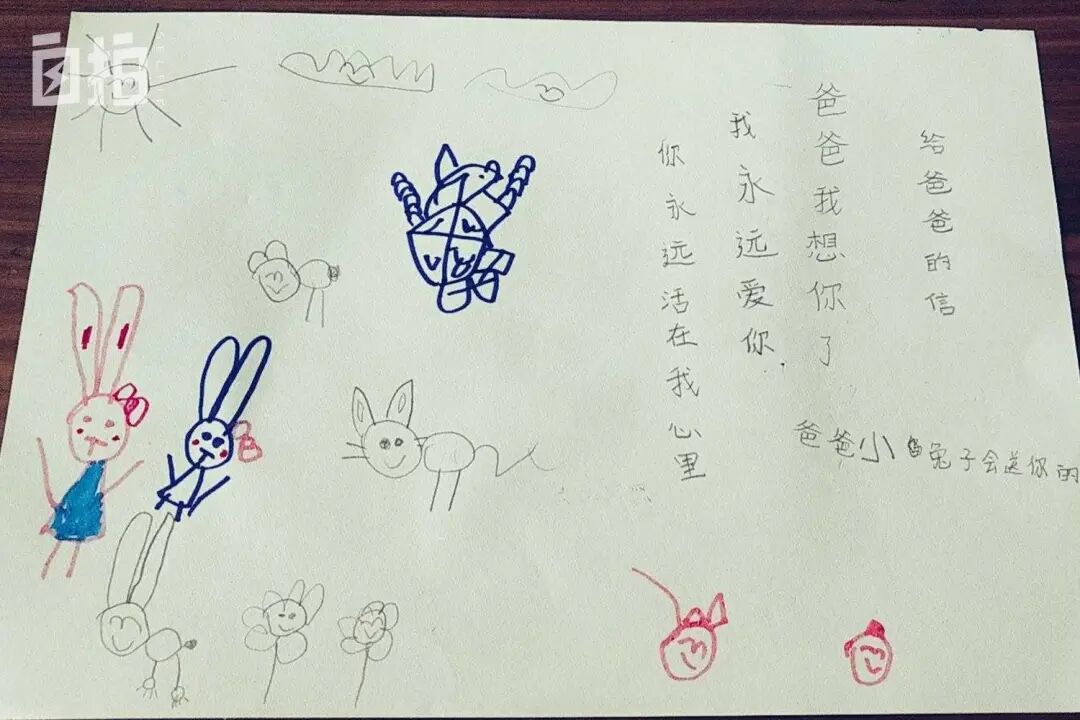 给爸爸的信
爸爸我想你了
我永远爱你.
你永远活在我心里
爸爸小兔子会送你的
自拍